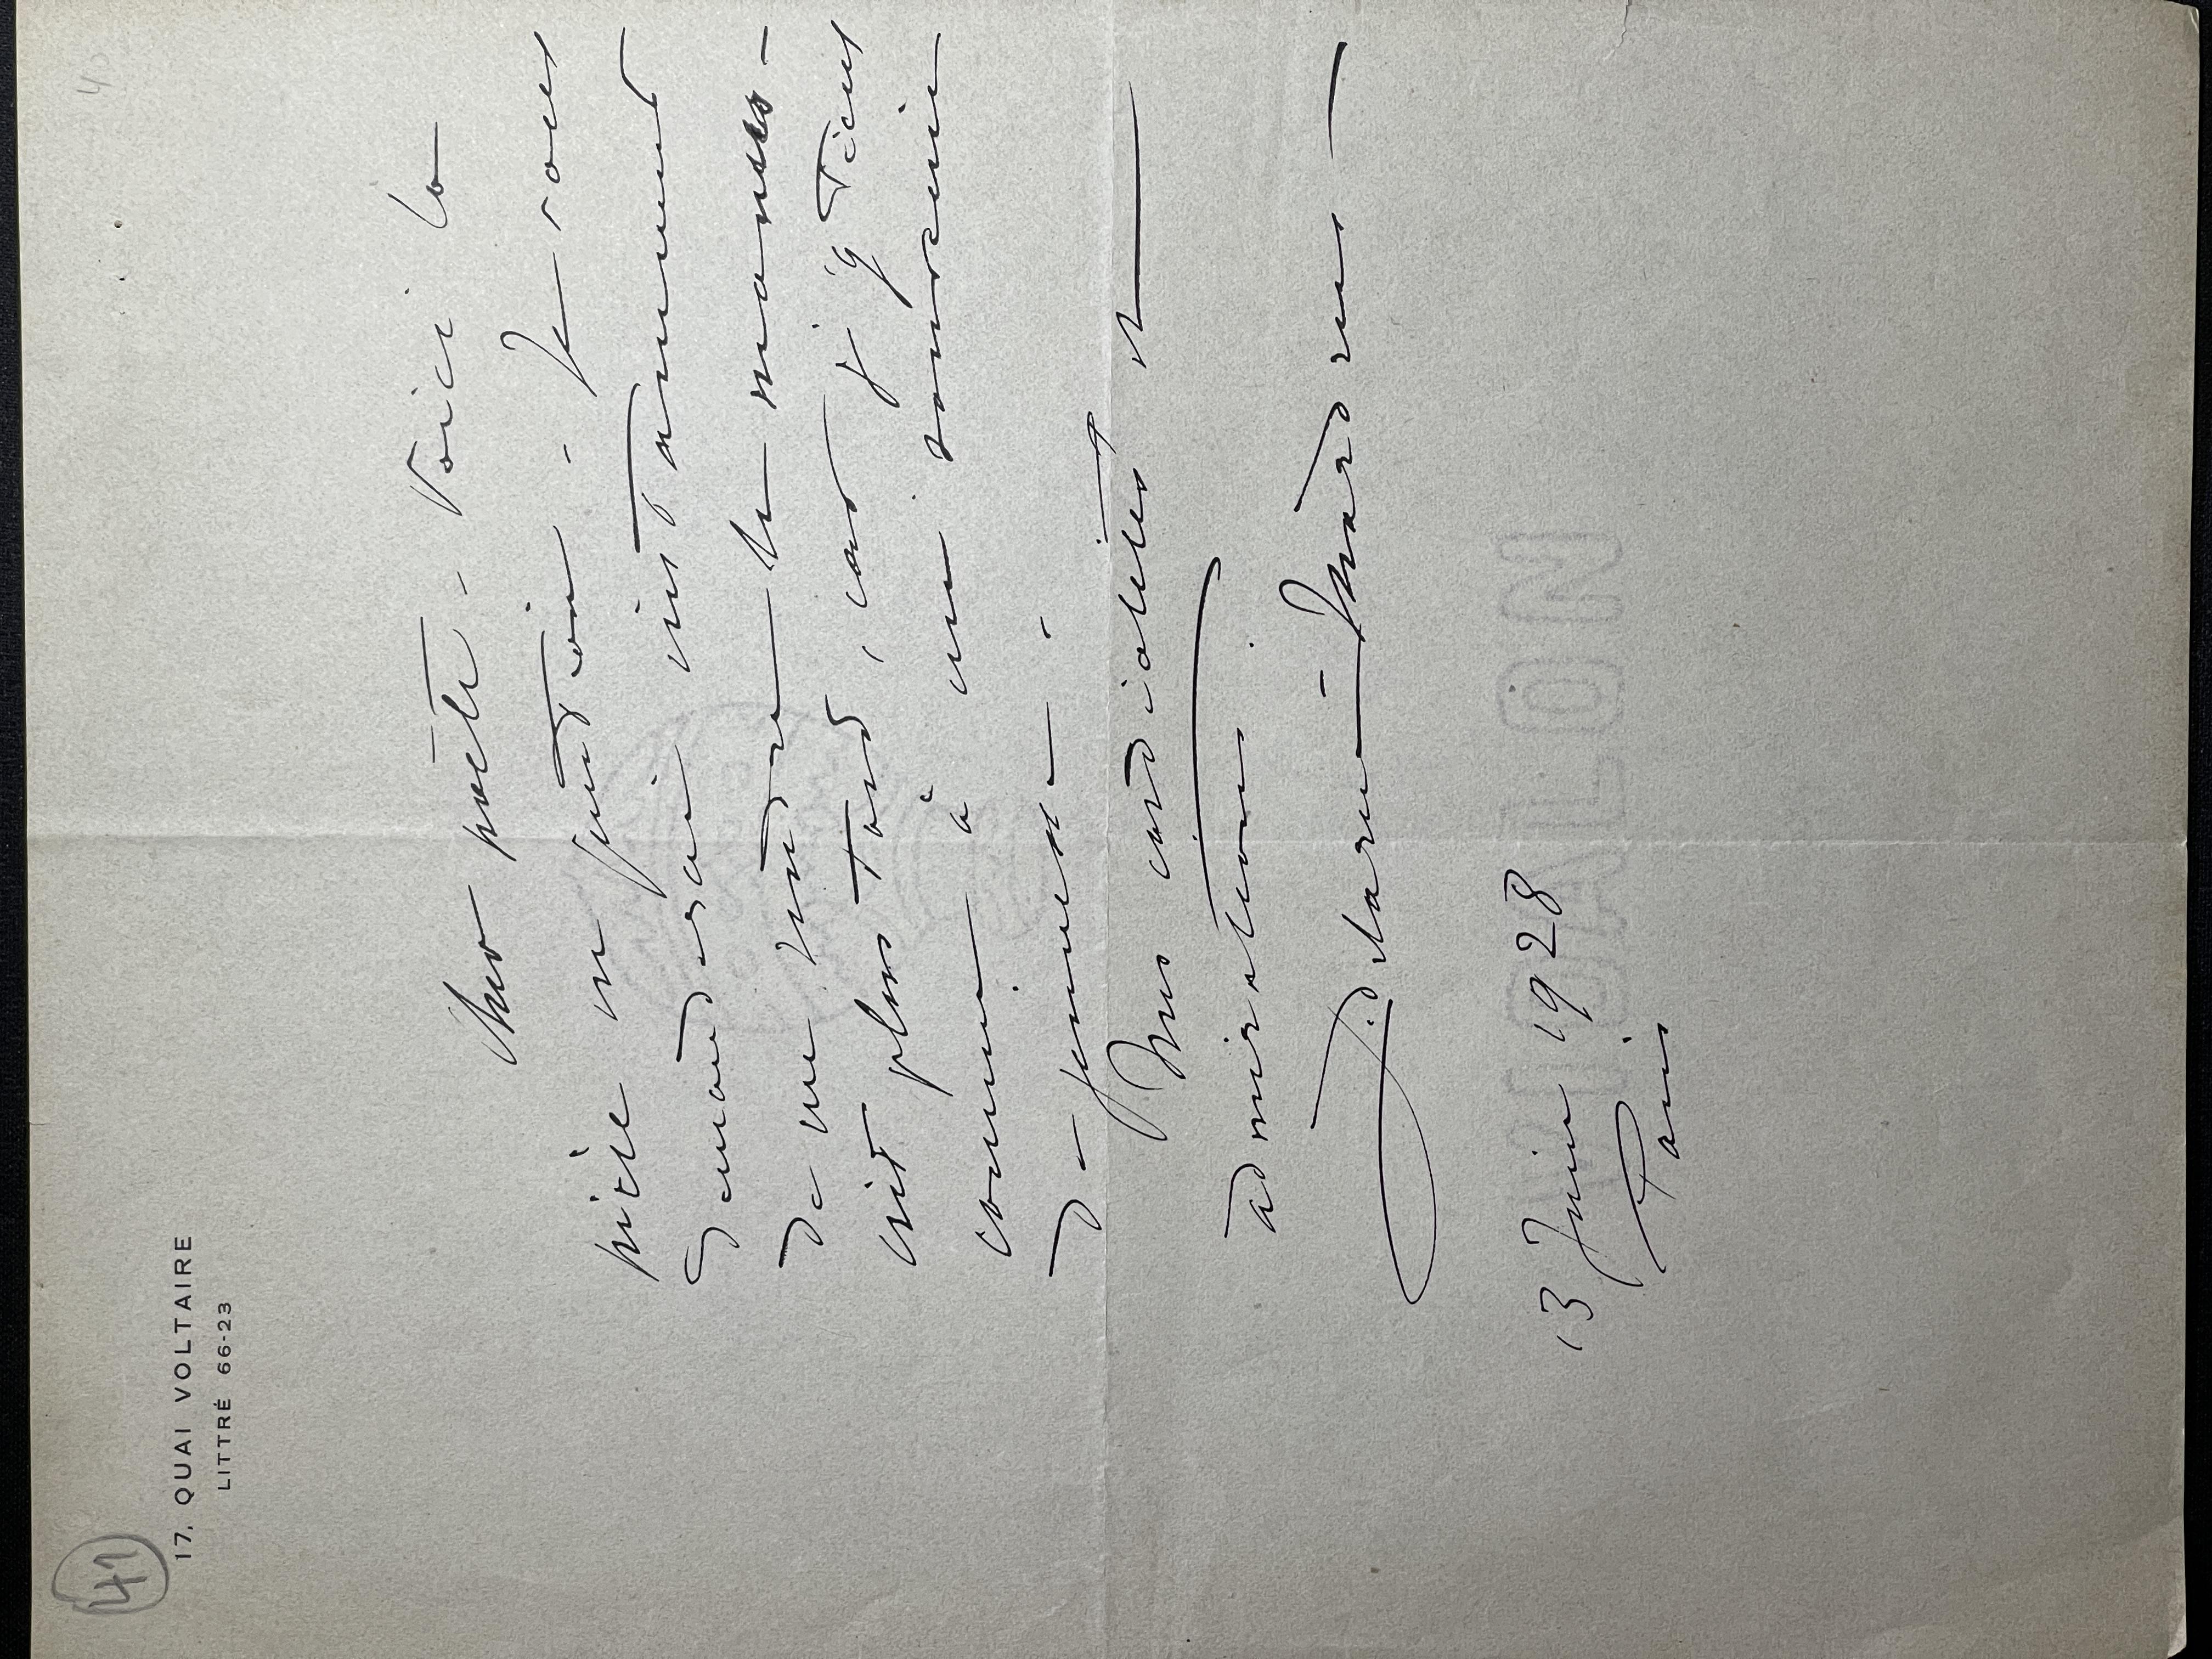 41
40
17, QUAI VOLTAIRE
LITTRÉ 66-23
Cher poète. Voici la
pièce en question. Je vous
demanderai instamment
de me rendre le manus-
crit plus tard, car j'y tiens
comme à un souvenir
de jeunesse.
Mes cordialités et
admiration.
L. Delarue-Mardrus
13 Juin 1928
Paris